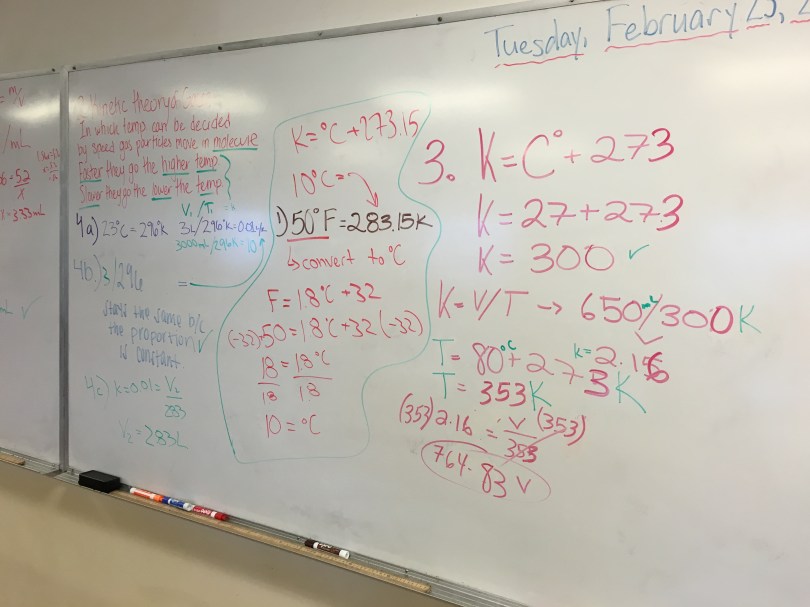 Tuesday, February 25,
/mL
In which temp can be decided
by speed gas particles move in molecule
Faster they go the higher temp.
Slower they go the lower the temp.
V₁/T₁ = k
4a) 23°C = 296°K
3000mL/296K
4b.) 3/296
stays the same b/c
the proportion
is constant.
4c) K=0.01=V₂/283
V₂ = 283L
K=°C+273.15
10°C=
1) 50°F=283.15K
convert to °C
F=1.8°C+32
(-32)50=1.8°C+32(-32)
18 = 1.8°C
18 1.8
10=°C
3. K=C°+273
K=27+273
K=300 ✓
K=V/T → 650mL/300K
K=2.16
T=80°C+273K
T=353K
(353)2.16=V/353(353)
764.83 V